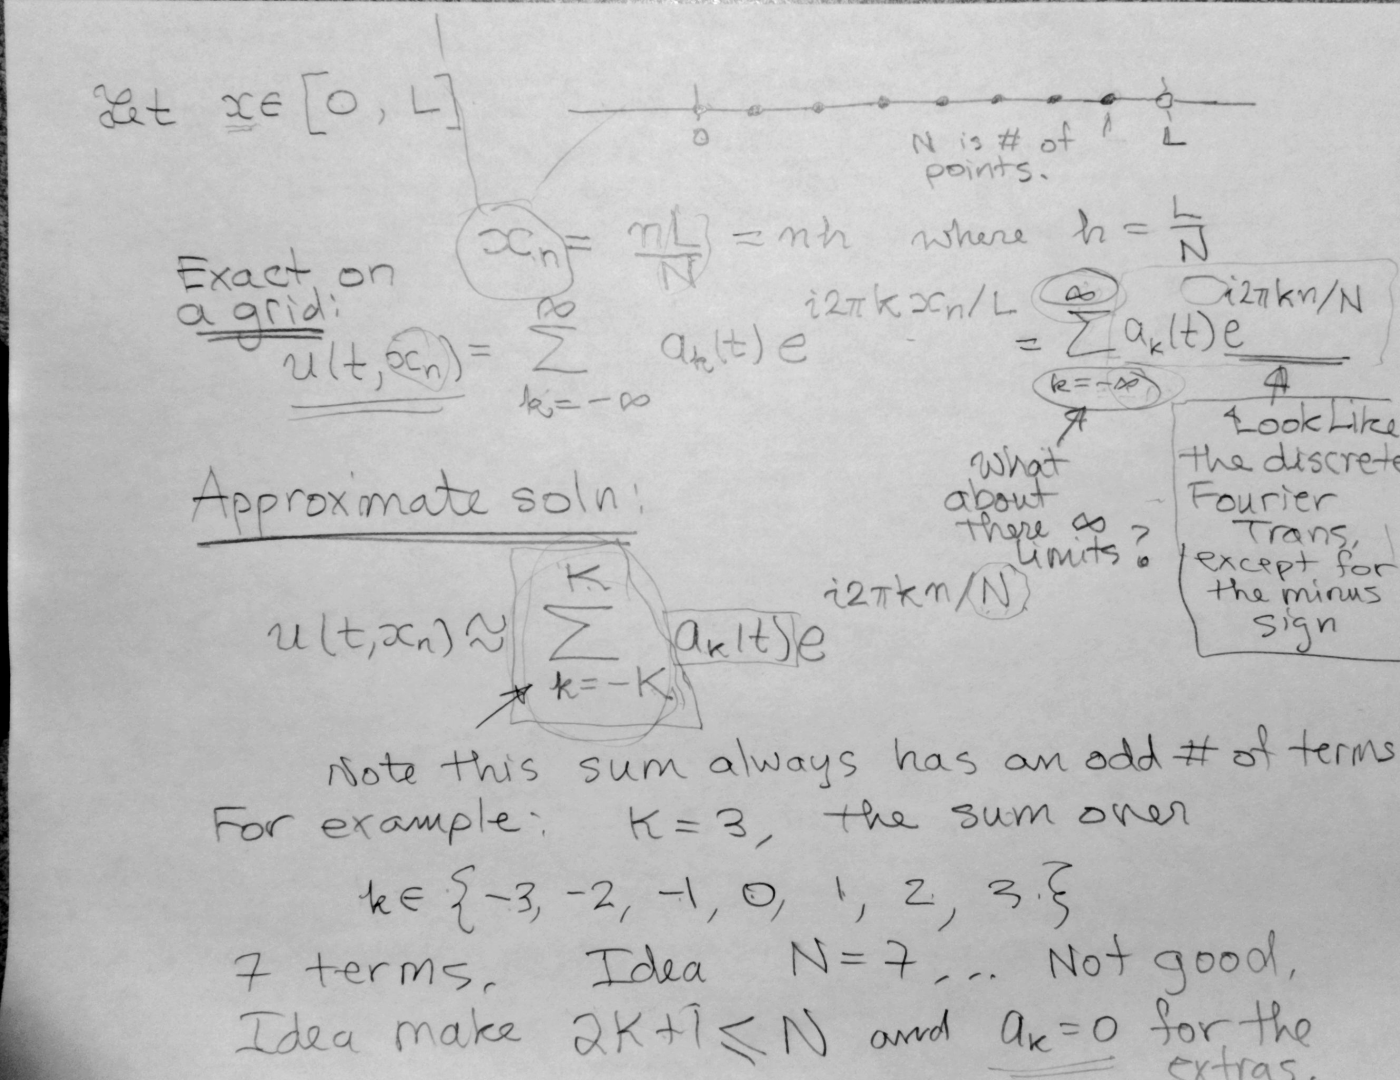 Let x ∈ [0, L]
0 L
N is # of
points.
xₙ = nL/N = nh where h = L/N
Exact on
a grid:
u(t, xₙ) = ∑_{k=-∞}^{∞} aₖ(t) e^{i2πk xₙ/L} = ∑_{k=-∞}^{∞} aₖ(t) e^{i2πkn/N}
What
about
there ∞
limits?
Look Like
the discrete
Fourier
Trans,
except for
the minus
sign
Approximate soln:
u(t, xₙ) ≈ ∑_{k=-K}^{K} aₖ(t) e^{i2πkn/N}
Note this sum always has an odd # of terms
For example: K = 3, the sum over
k ∈ {-3, -2, -1, 0, 1, 2, 3.}
7 terms. Idea N = 7,... Not good.
Idea make 2K+1 ≤ N and aₖ = 0 for the
extras.